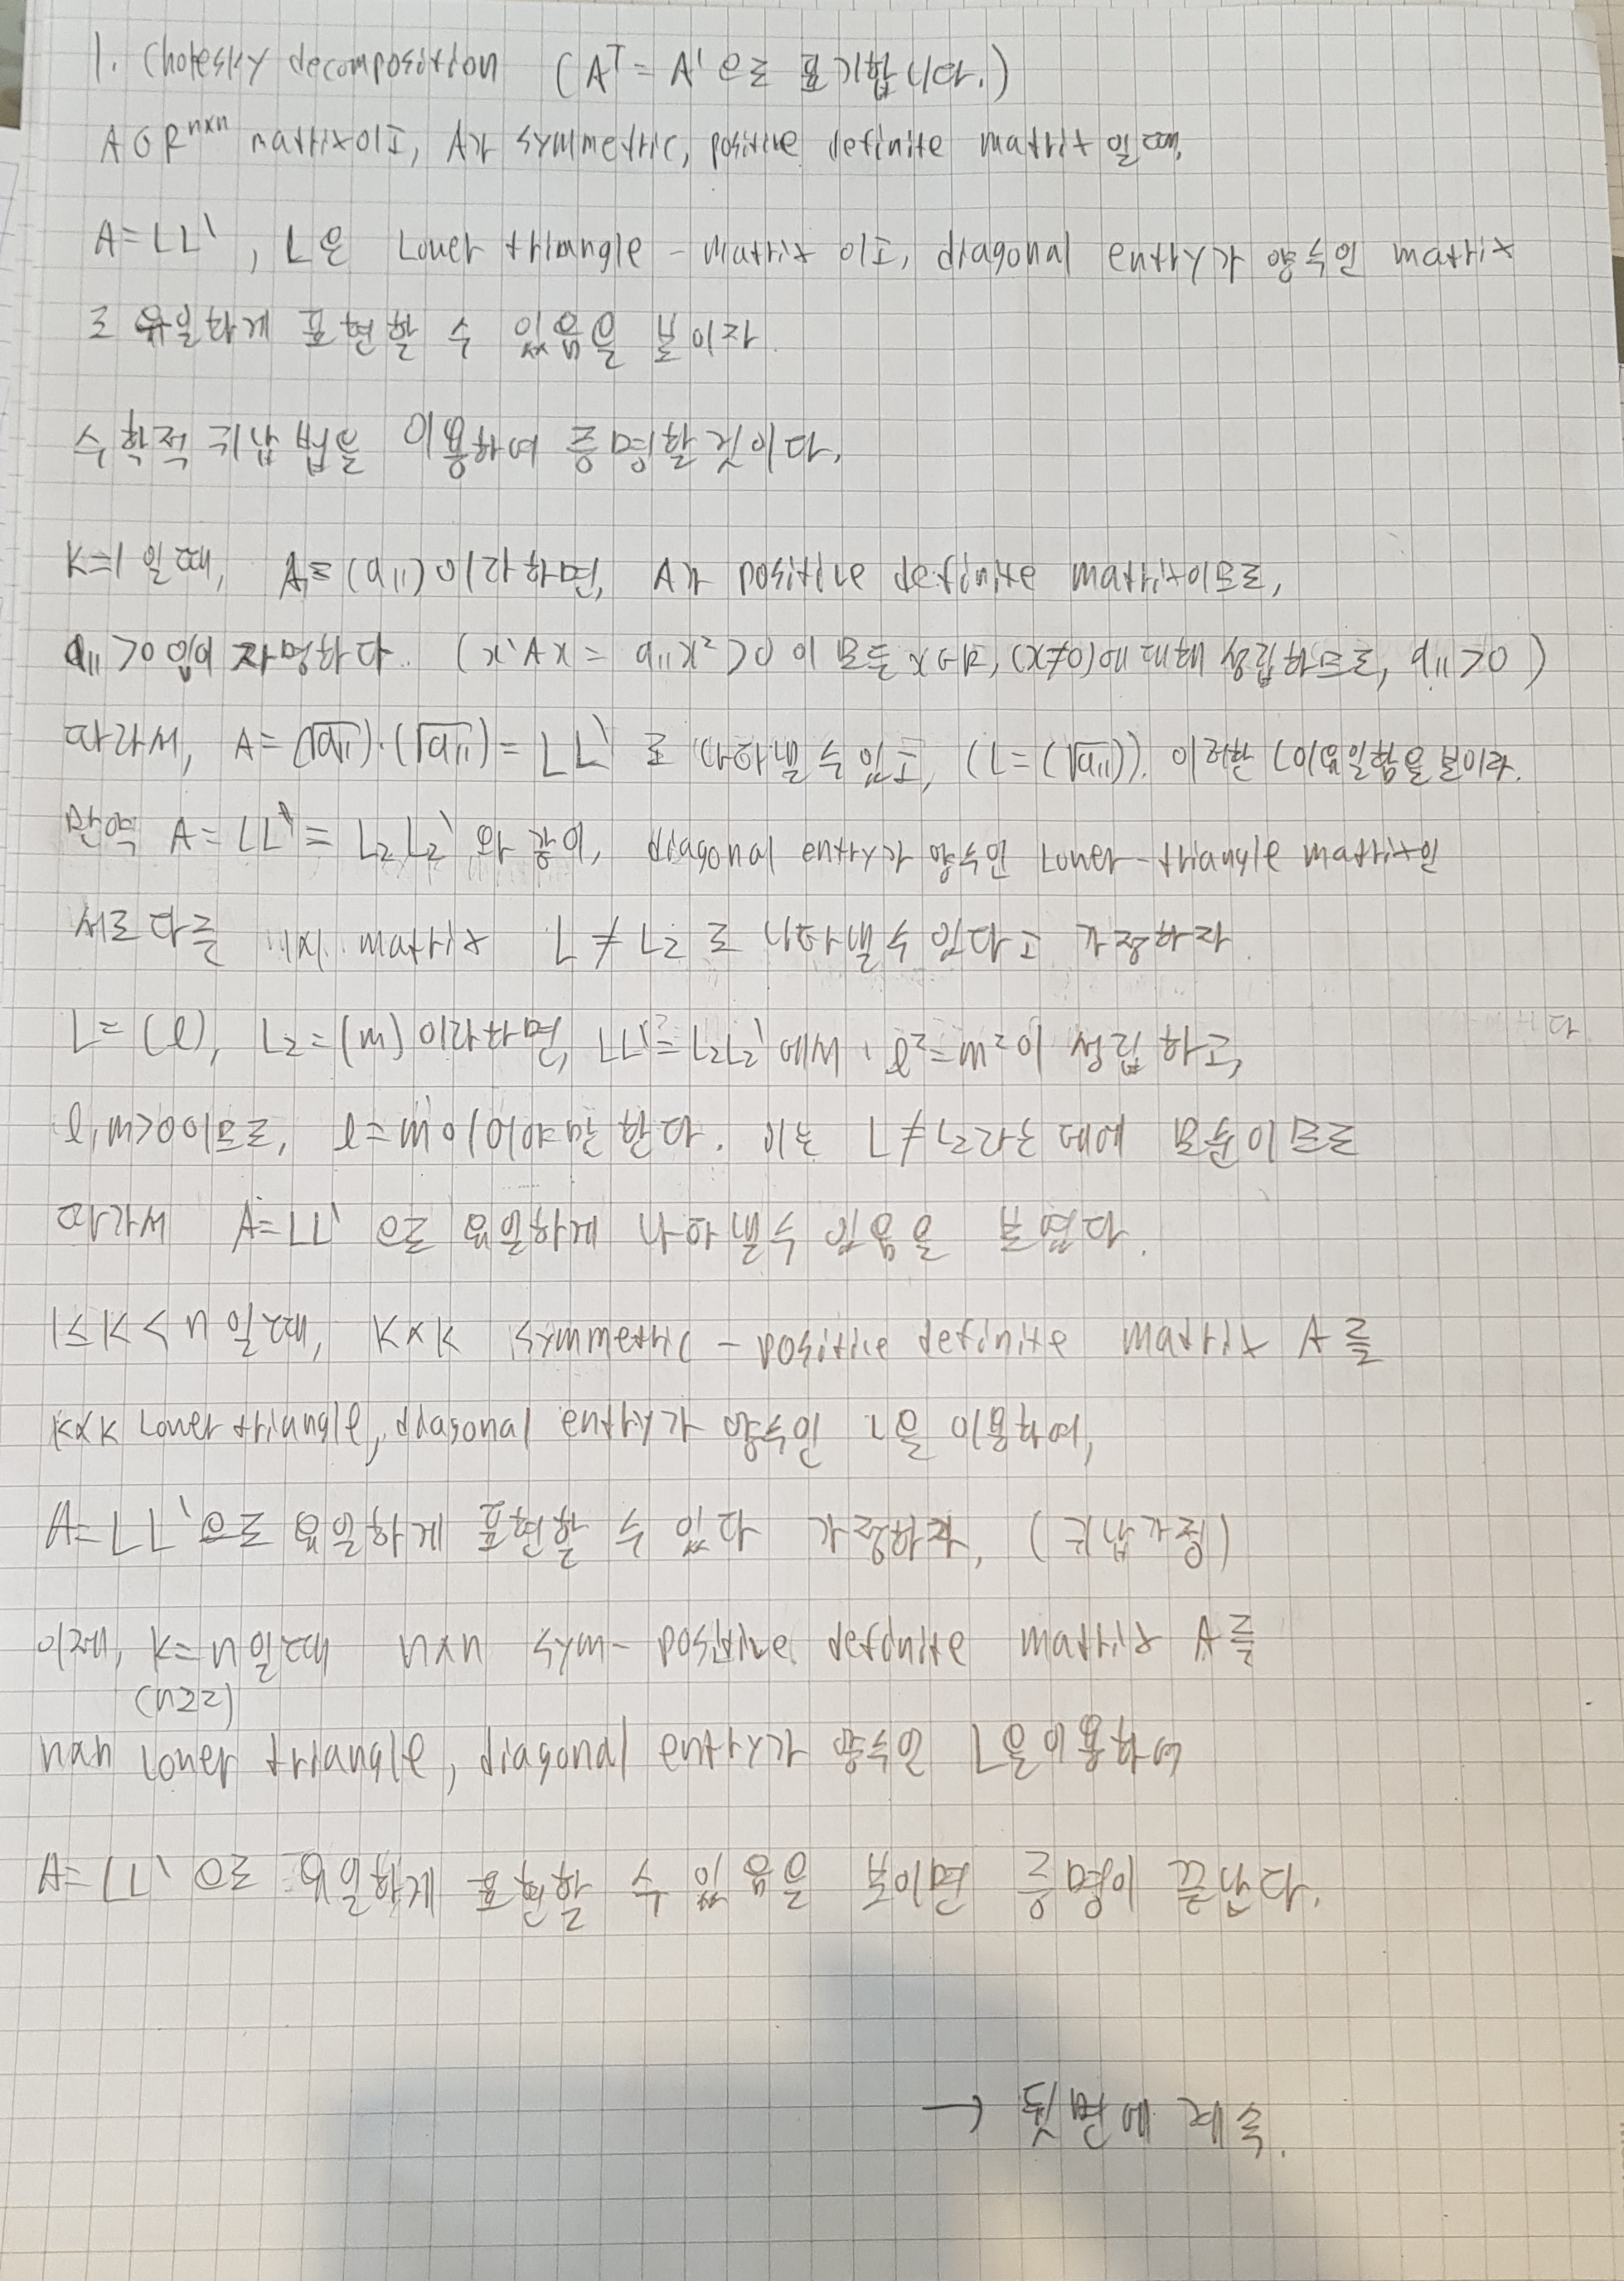 1. Cholesky decomposition (Aᵀ = A' 으로 표기합니다.)
A∈Rⁿˣⁿ matrix이고, A가 symmetric, positive definite matrix 일 때,
A=LL' , L은 Lower triangle - matrix 이고, diagonal entry가 양수인 matrix
로 유일하게 표현할 수 있음을 보이자.
수학적 귀납법을 이용하여 증명할 것이다.
K=1 일 때, A=(a₁₁) 이라 하면, A가 positive definite matrix이므로,
a₁₁>0 임이 자명하다. (x'Ax = a₁₁x²>0 이 모든 x∈R, (x≠0)에 대해 성립하므로, a₁₁>0)
따라서, A=(√a₁₁)·(√a₁₁)=LL' 로 나타낼 수 있고, (L=(√a₁₁)). 이러한 L이 유일함을 보이라.
만약 A=LL'=L₂L₂' 와 같이, diagonal entry가 양수인 Lower-triangle matrix인
서로 다른 1x1 matrix L≠L₂ 로 나타낼 수 있다고 가정하자.
L=(l), L₂=(m) 이라하면, LL'=L₂L₂' 에서, l²=m²이 성립하고,
l,m>0이므로, l=m 이어야만 한다. 이는 L≠L₂라는 데에 모순이므로
따라서 A=LL' 으로 유일하게 나타낼 수 있음을 보였다.
1≤K<n 일 때, KxK symmetric - positive definite matrix A를
KxK Lower triangle, diagonal entry가 양수인 L을 이용하여,
A=LL'으로 유일하게 표현할 수 있다 가정하자. (귀납가정)
이제, K=n일 때 nxn sym-positive definite matrix A를
(n≥2)
nxn Lower triangle, diagonal entry가 양수인 L을 이용하여
A=LL' 으로 유일하게 표현할 수 있음을 보이면 증명이 끝난다.
→ 뒷면에 계속.